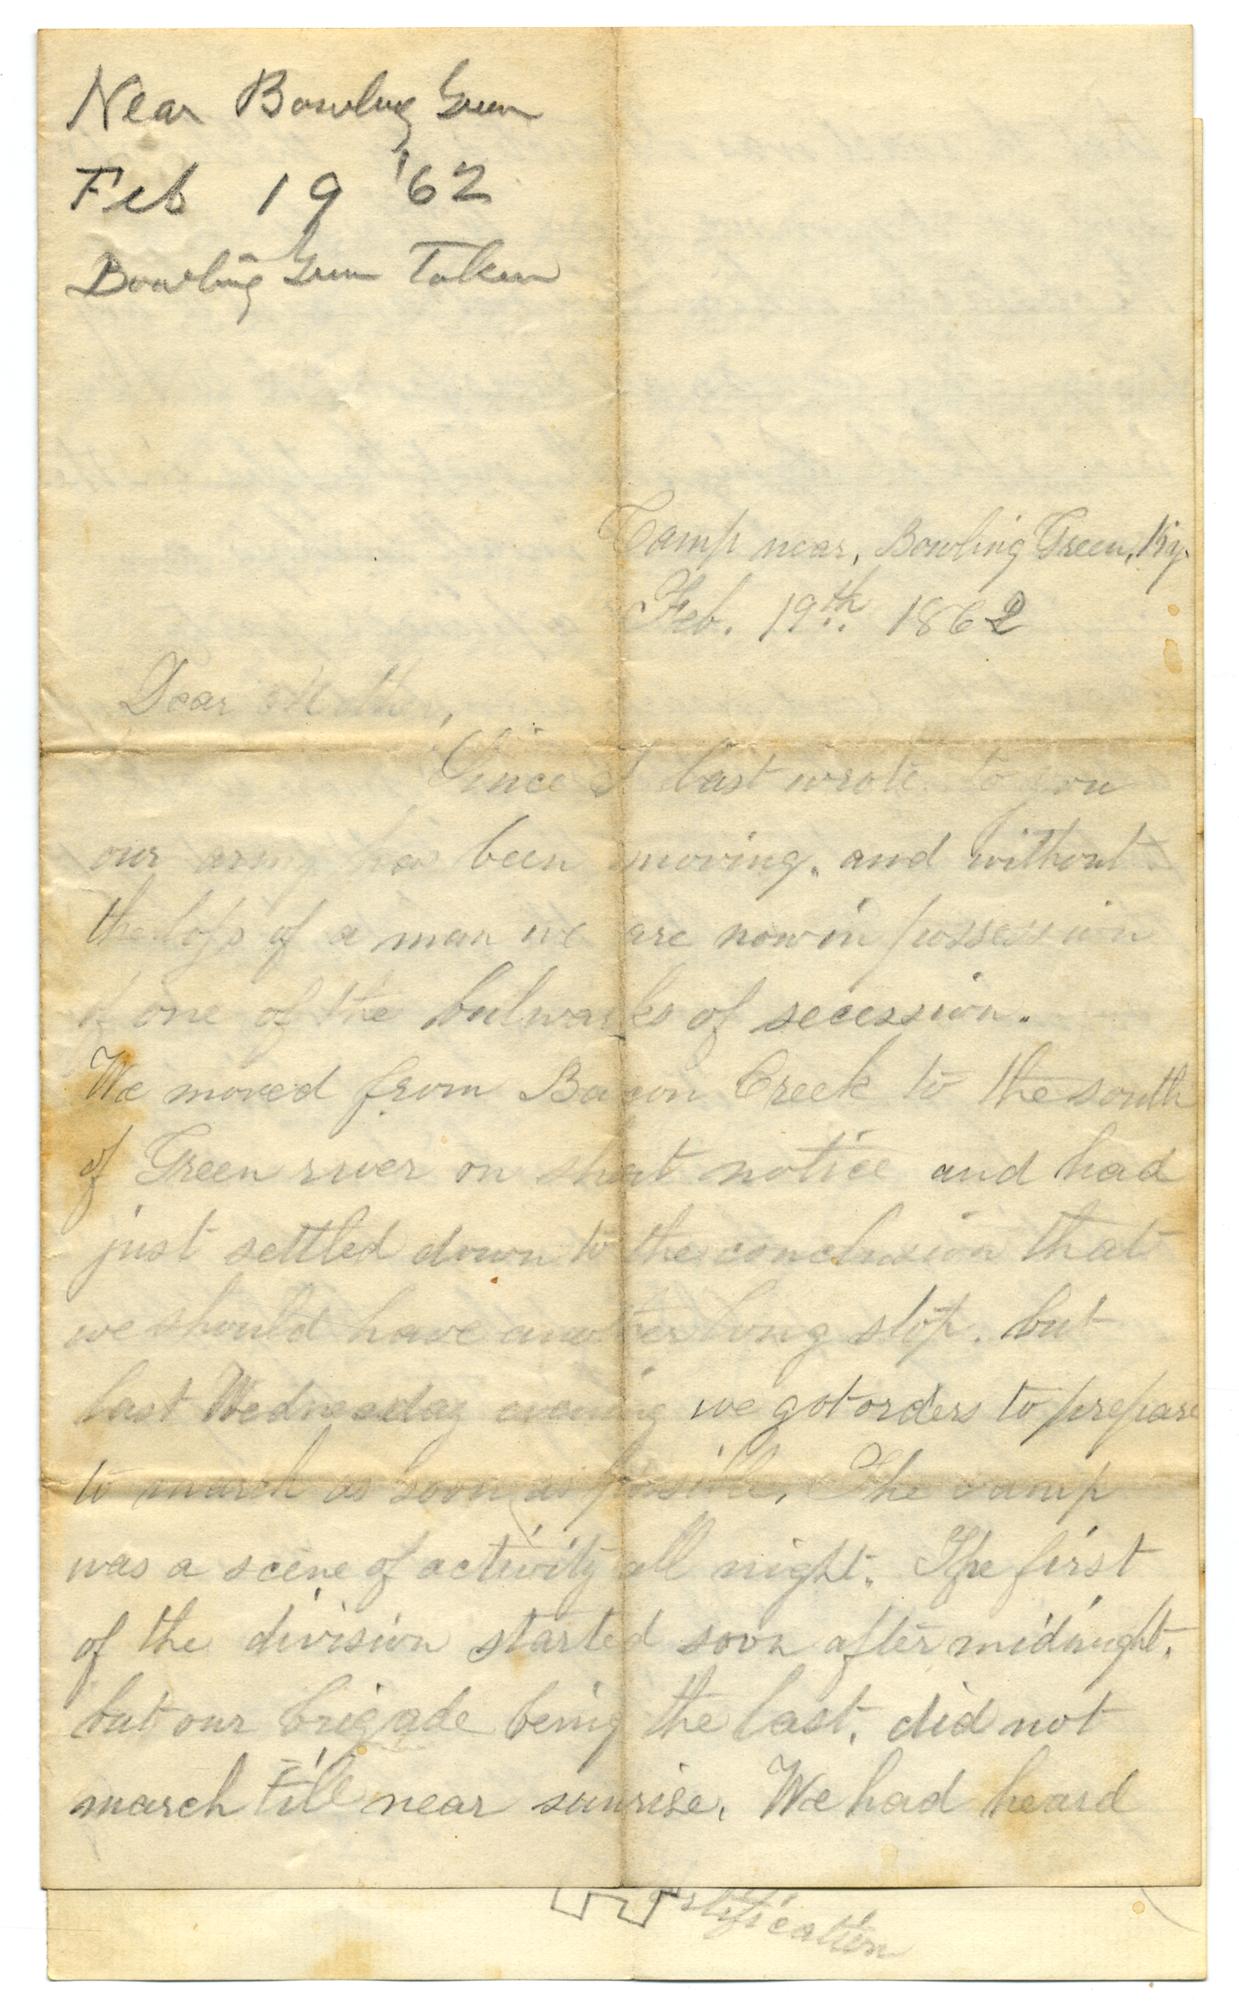 Near Bowling Green
Feb 19 '62
Bowling Green Taken
Camp near, Bowling Green, Ky.
Feb. 19th 1862
Dear Mother,
Since I last wrote to you
our army has been moving, and without
the loss of a man we are now in possession
of one of the bulwarks of secession.
We moved from Bacon Creek to the south
of Green river on short notice and had
just settled down to the conclusion that
we should have another long stop, but
last Wednesday evening we got orders to prepare
to march as soon as possible. The camp
was a scene of activity all night. The first
of the division started soon after midnight,
but our brigade being the last, did not
march till near sunrise. We had heard
fortification